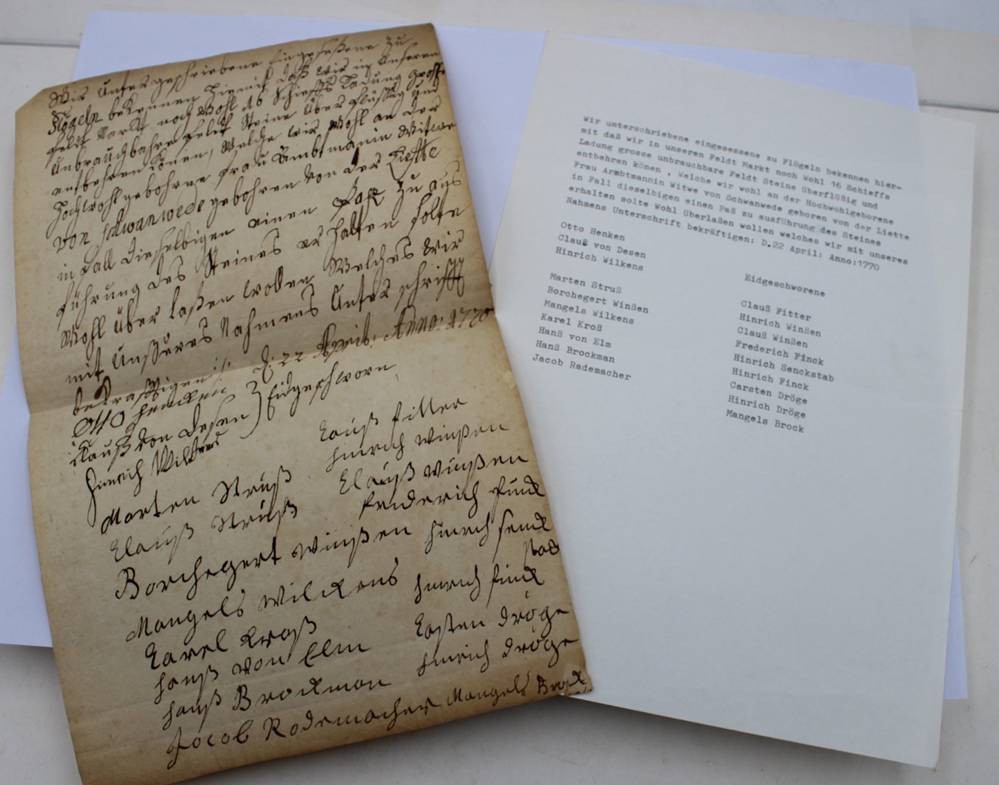 Wir Unterschriebene Eingeseßene zu
Flögeln bekennen hiermit daß wir in unseren
feldt Marckt noch Wohl 16 Schieffs Ladung grosse
unbrauchbahre feldt Steine über flüßig und
entbehren können, Welche wir Wohl an der
Hochwohlgebohrne frau Ambtmannin Witwe
von Schwanwede gebohren von der Liette
in fall dieselbigen einen Paß zu aus
führung des Steines er halten solte
Wohl über laßen wollen Welches wir
mit unseres Nahmens Unter schrifft
bekräftigen: D. 22 April: Anno: 1770
Otto Hencken
Clauß von Desen } Eidgeschworn
Hinrich Wilkens
Marten Struß
Clauß Struß
Borchegert Winßen
Mangels Wilckens
Carel Kroß
Hanß von Elm
Hanß Brockman
Jacob Rodemacher
Clauß fitter
Hinrich Winßen
Clauß Winßen
friderich finck
Hinrich senck
stab
Hinrich finck
Casten dröge
Hinrich dröge
Mangels Brock
Wir unterschriebene eingesessene zu Flügeln bekennen hier-
mit daß wir in unseren Feldt Markt noch Wohl 16 Schiffs
Ladung grosse unbrauchbare Feldt Steine Überflüßig und
entbehren könen , Welche wir wohl an der Hochwohlgeborene
Frau Armbtmannin Witwe von Schwanwede geboren von der Liette
in Fall dieselbigen einen Paß zu ausführung des Steines
erhalten solte Wohl Überlaßen wollen welches wir mit unseres
Nahmens Unterschrift bekräftigen: D.22 April: Anno:1770
Otto Henken
Clauß von Desen
Hinrich Wilkens
Marten Struß
Borchegert Winßen
Mangels Wilkens
Karel Kroß
Hanß von Elm
Hanß Brockman
Jacob Rademacher
Eidgeschworene
Clauß Fitter
Hinrich Winßen
Clauß Winßen
Frederich Finck
Hinrich Senckstab
Hinrich Finck
Carsten Dröge
Hinrich Dröge
Mangels Brock